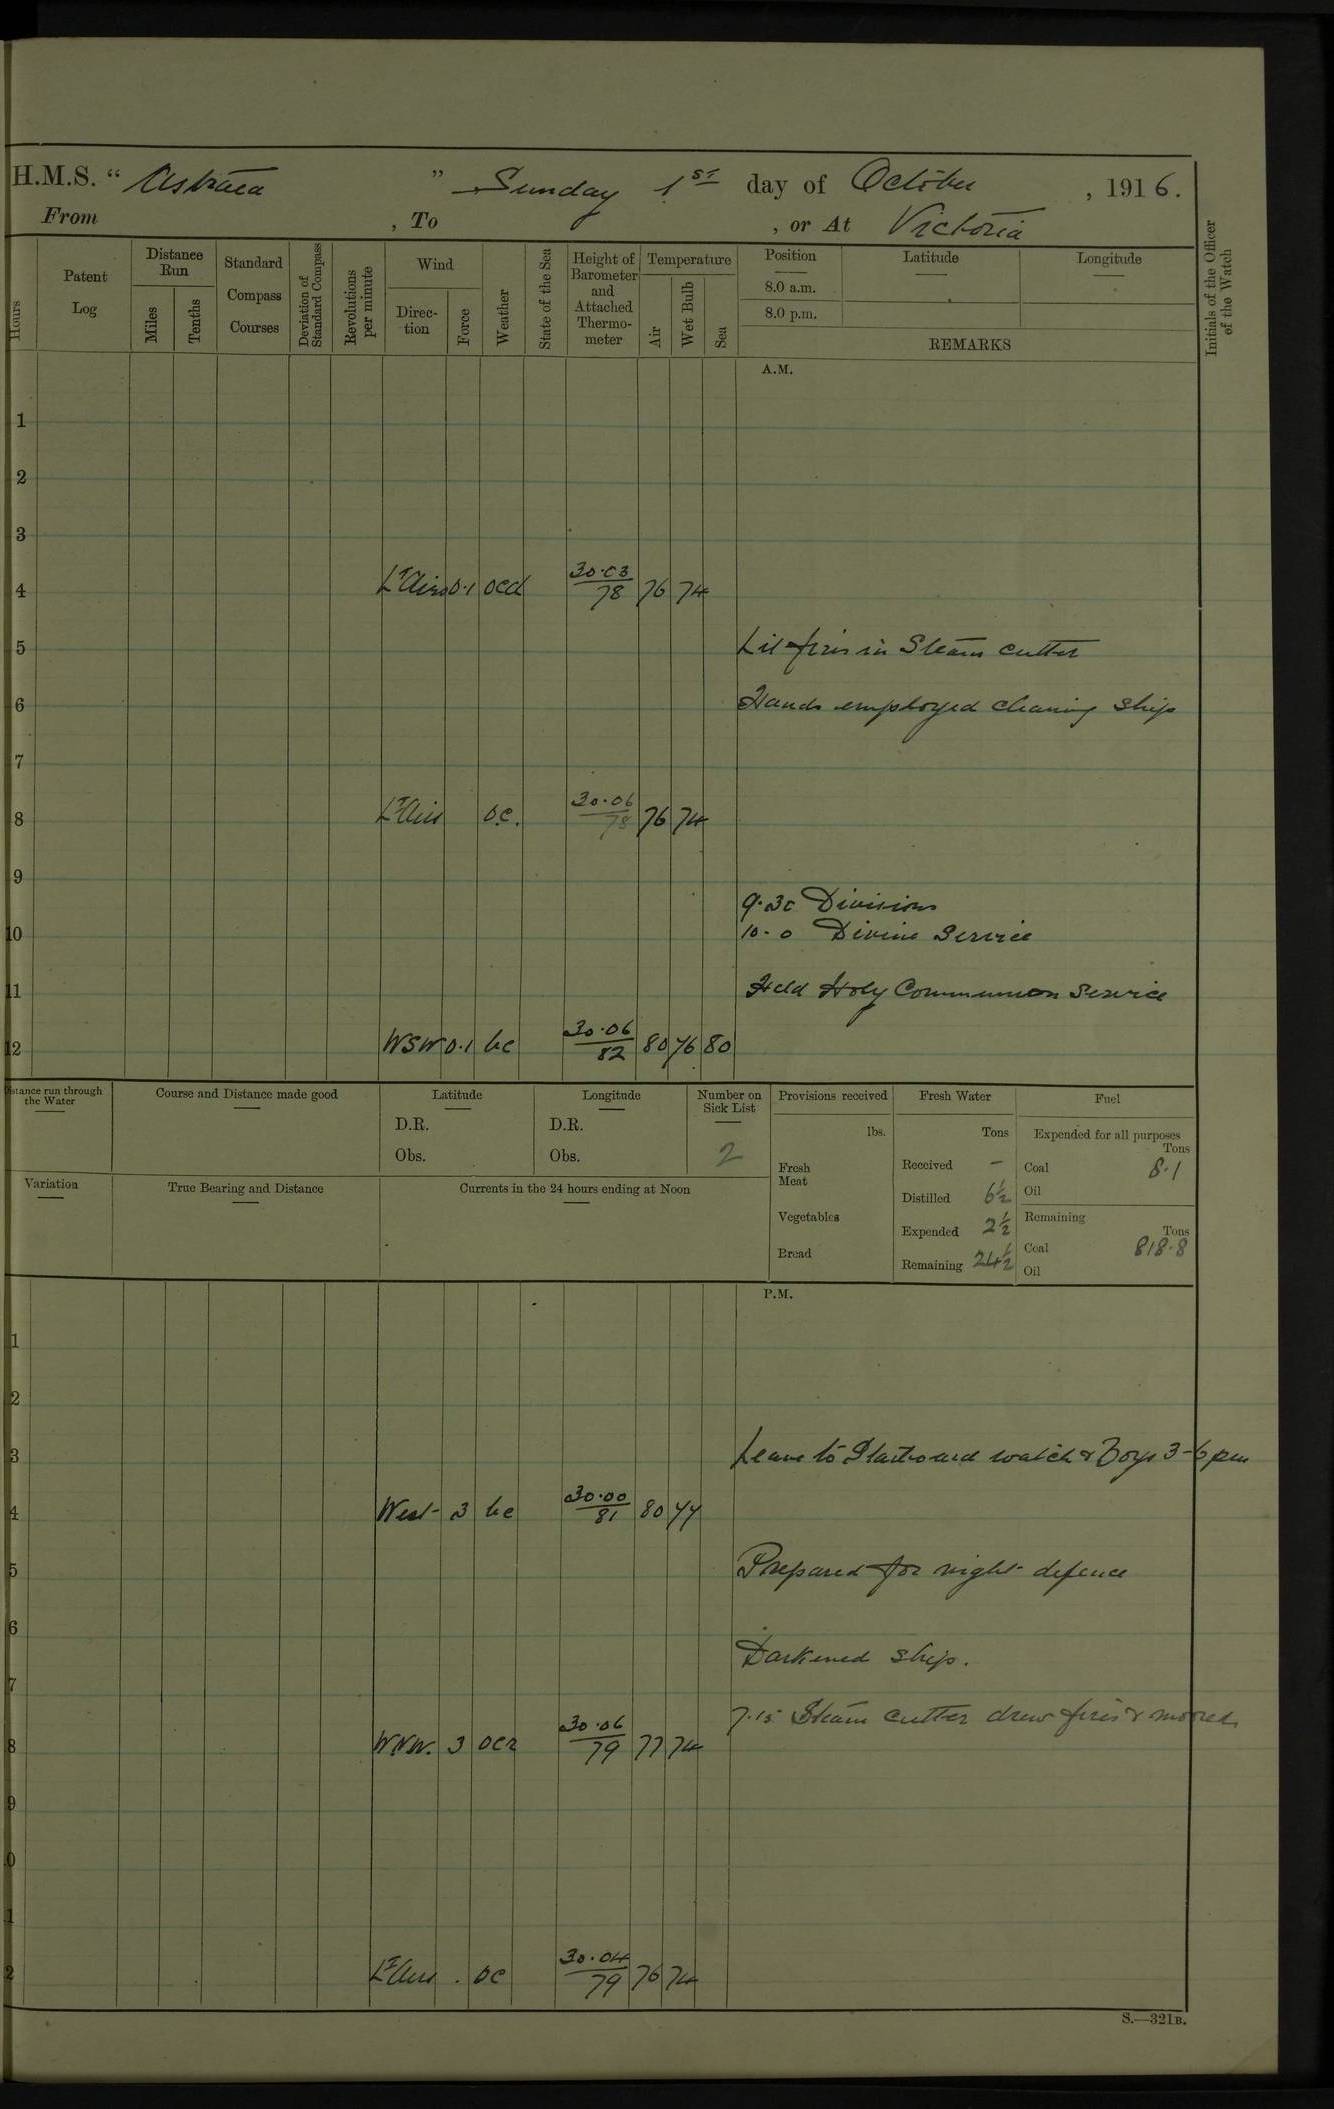 H.M.S. “ Astraea ” Sunday 1st day of October , 1916.
From , To , or At Victoria
Hours
Patent Log
Distance Run
Miles
Tenths
Standard Compass Courses
Deviation of Standard Compass
Revolutions per minute
Wind
Direc-tion
Force
Weather
State of the Sea
Height of Barometer and Attached Thermo-meter
Temperature
Air
Wet Bulb
Sea
Position
8.0 a.m.
8.0 p.m.
Latitude
Longitude
REMARKS
Initials of the Officer of the Watch
A.M.
1
2
3
4 Lt Airs 0.1 ocd 30.03 78 76 74
5 Lit fires in Steam cutter
6 Hands employed cleaning ship
7
8 Lt Airs oc. 30.06 78 76 74
9
9.30 Divisions
10 10.0 Divine Service
11 Held Holy Communion Service
12 WSW 0.1 bc 30.06 82 80 76 80
Distance run through the Water
Course and Distance made good
Latitude
D.R.
Obs.
Longitude
D.R.
Obs.
Number on Sick List
2
Provisions received
lbs.
Fresh Meat
Vegetables
Bread
Fresh Water
Tons
Received –
Distilled 6½
Expended 2½
Remaining 24½
Fuel
Expended for all purposes
Tons
Coal 8.1
Oil
Remaining
Tons
Coal 818.8
Oil
Variation
True Bearing and Distance
Currents in the 24 hours ending at Noon
P.M.
1
2
3 Leave to Starboard watch & Boys 3-6 pm
4 West 3 bc 30.00 81 80 77
5 Prepared for night defence
6
Darkened ship.
7
7.15 Steam cutter drew fires & moored
8 WNW. 3 ocr 30.06 79 77 74
9
0
1
2 Lt Airs . oc 30.04 79 76 74
S.—321B.